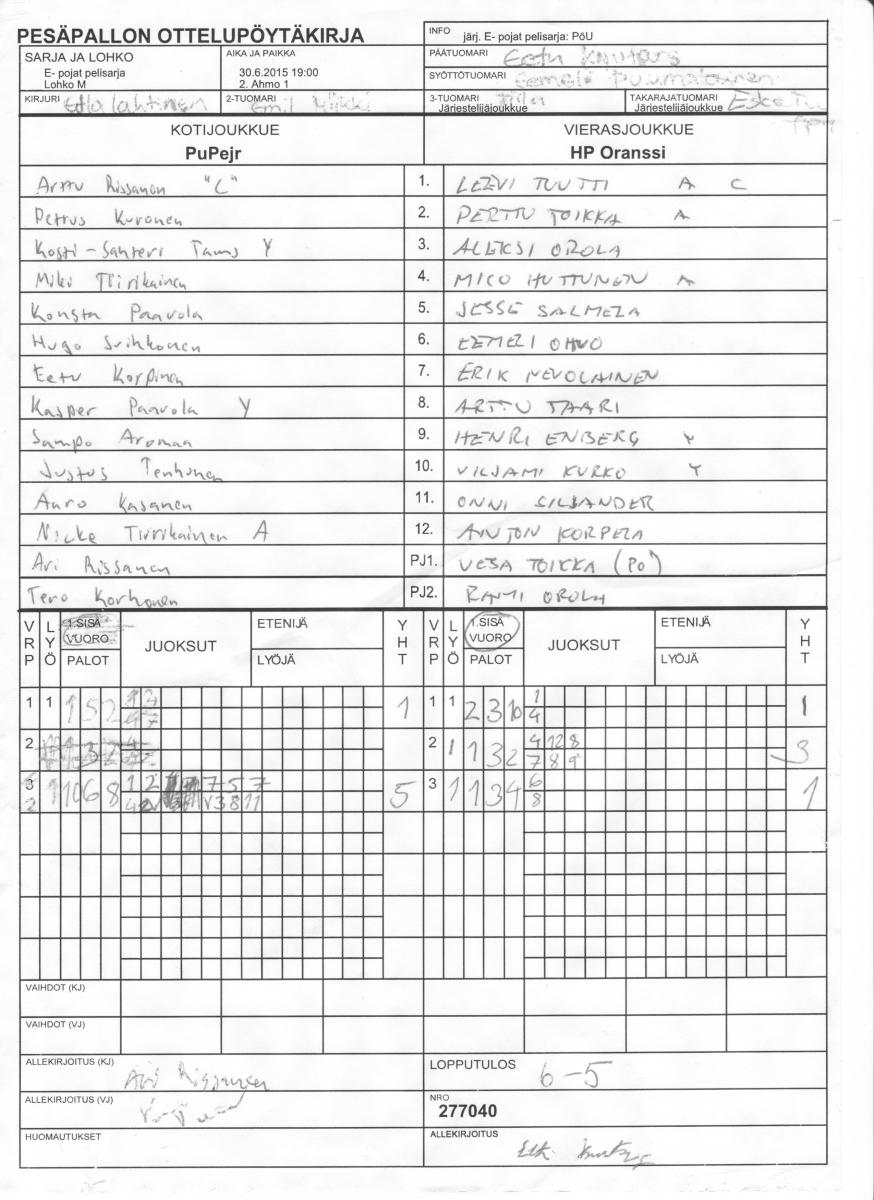 PESÄPALLON OTTELUPÖYTÄKIRJA
INFO järj. E- pojat pelisarja: PöU
SARJA JA LOHKO
E- pojat pelisarja
Lohko M
AIKA JA PAIKKA
30.6.2015 19:00
2. Ahmo 1
PÄÄTUOMARI Eetu
SYÖTTÖTUOMARI
KIRJURI
2-TUOMARI Emil
3-TUOMARI
Järjestelijäjoukkue
TAKARAJATUOMARI
Järjestelijäjoukkue
KOTIJOUKKUE
PuPejr
VIERASJOUKKUE
HP Oranssi
Arttu Rissanen "C" 1. LEEVI TUUTTI A C
Petrus Kuronen 2. PERTTU TOIKKA A
Kosti-Santeri Tams Y 3. ALEKSI OROLA
Miko Tiirikainen 4. MICO HUTTUNEN A
Konsta Paavola 5. JESSE SALMELA
Hugo Suihkonen 6. EEMELI OHVO
Eetu Korpinen 7. ERIK NEVOLAINEN
Kasper Paavola Y 8. ARTTU TAARI
Sampo Aromaa 9. HENRI ENBERG Y
Justus Tenhunen 10. VILJAMI KURKO Y
Auro Kasanen 11. ONNI SILJANDER
Nicke Tiirikainen A 12. ANTON KORPELA
Ari Rissanen PJ1. VESA TOIKKA (PO)
Tero Korhonen PJ2. RAMI OROLA
VRP LYÖ 1.SISÄ VUORO PALOT JUOKSUT ETENIJÄ LYÖJÄ YHT VRP LYÖ 1.SISÄ VUORO PALOT JUOKSUT ETENIJÄ LYÖJÄ YHT
1 1 1 5 2 1 1 1 2 3 10 1 4 1
2 2 1 1 3 2 4 12 8 7 8 9 3
3 2 1 10 6 8 5 3 1 1 3 4 6 8 1
VAIHDOT (KJ)
VAIHDOT (VJ)
ALLEKIRJOITUS (KJ) Ari Rissanen
LOPPUTULOS 6-5
ALLEKIRJOITUS (VJ)
NRO
277040
HUOMAUTUKSET
ALLEKIRJOITUS